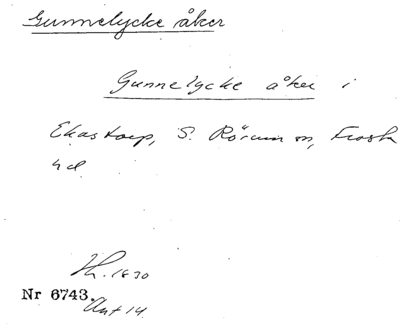 Gunnelycke åker
Gunnelycke åker i
Ekastorp, S. Rörum sn, Frosta
hd
1830
Nr 6743.
Ant 14